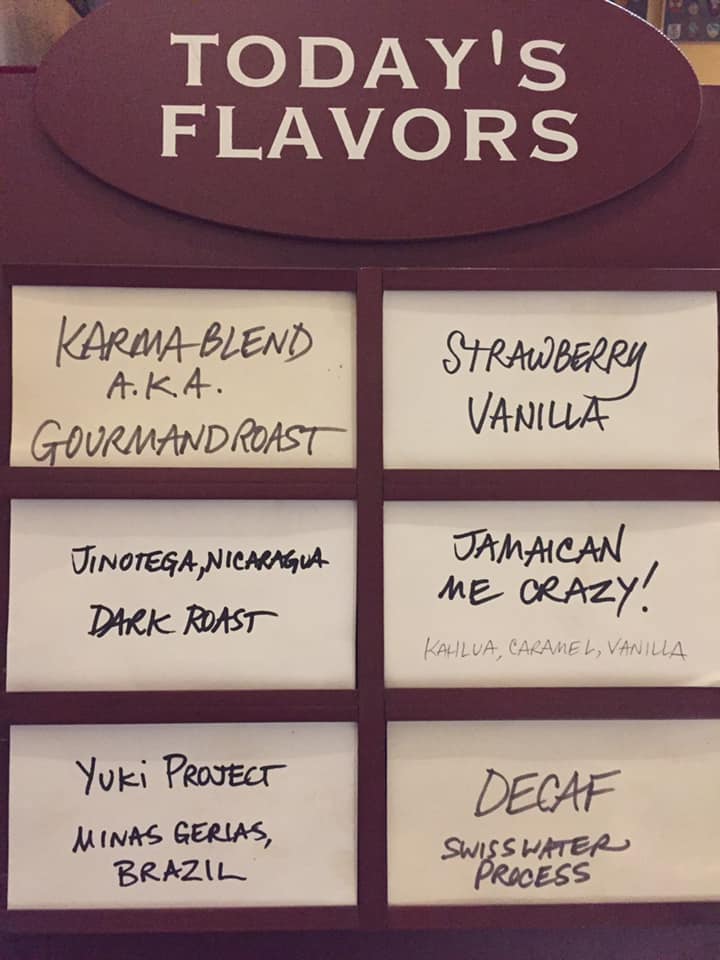 TODAY'S
FLAVORS
KARMA BLEND
A.K.A.
GOURMAND ROAST
STRAWBERRY
VANILLA
JINOTEGA, NICARAGUA
DARK ROAST
JAMAICAN
ME CRAZY!
KAHLUA, CARAMEL, VANILLA
YUKi PROJECT
MINAS GERIAS,
BRAZIL
DECAF
SWISS WATER
PROCESS